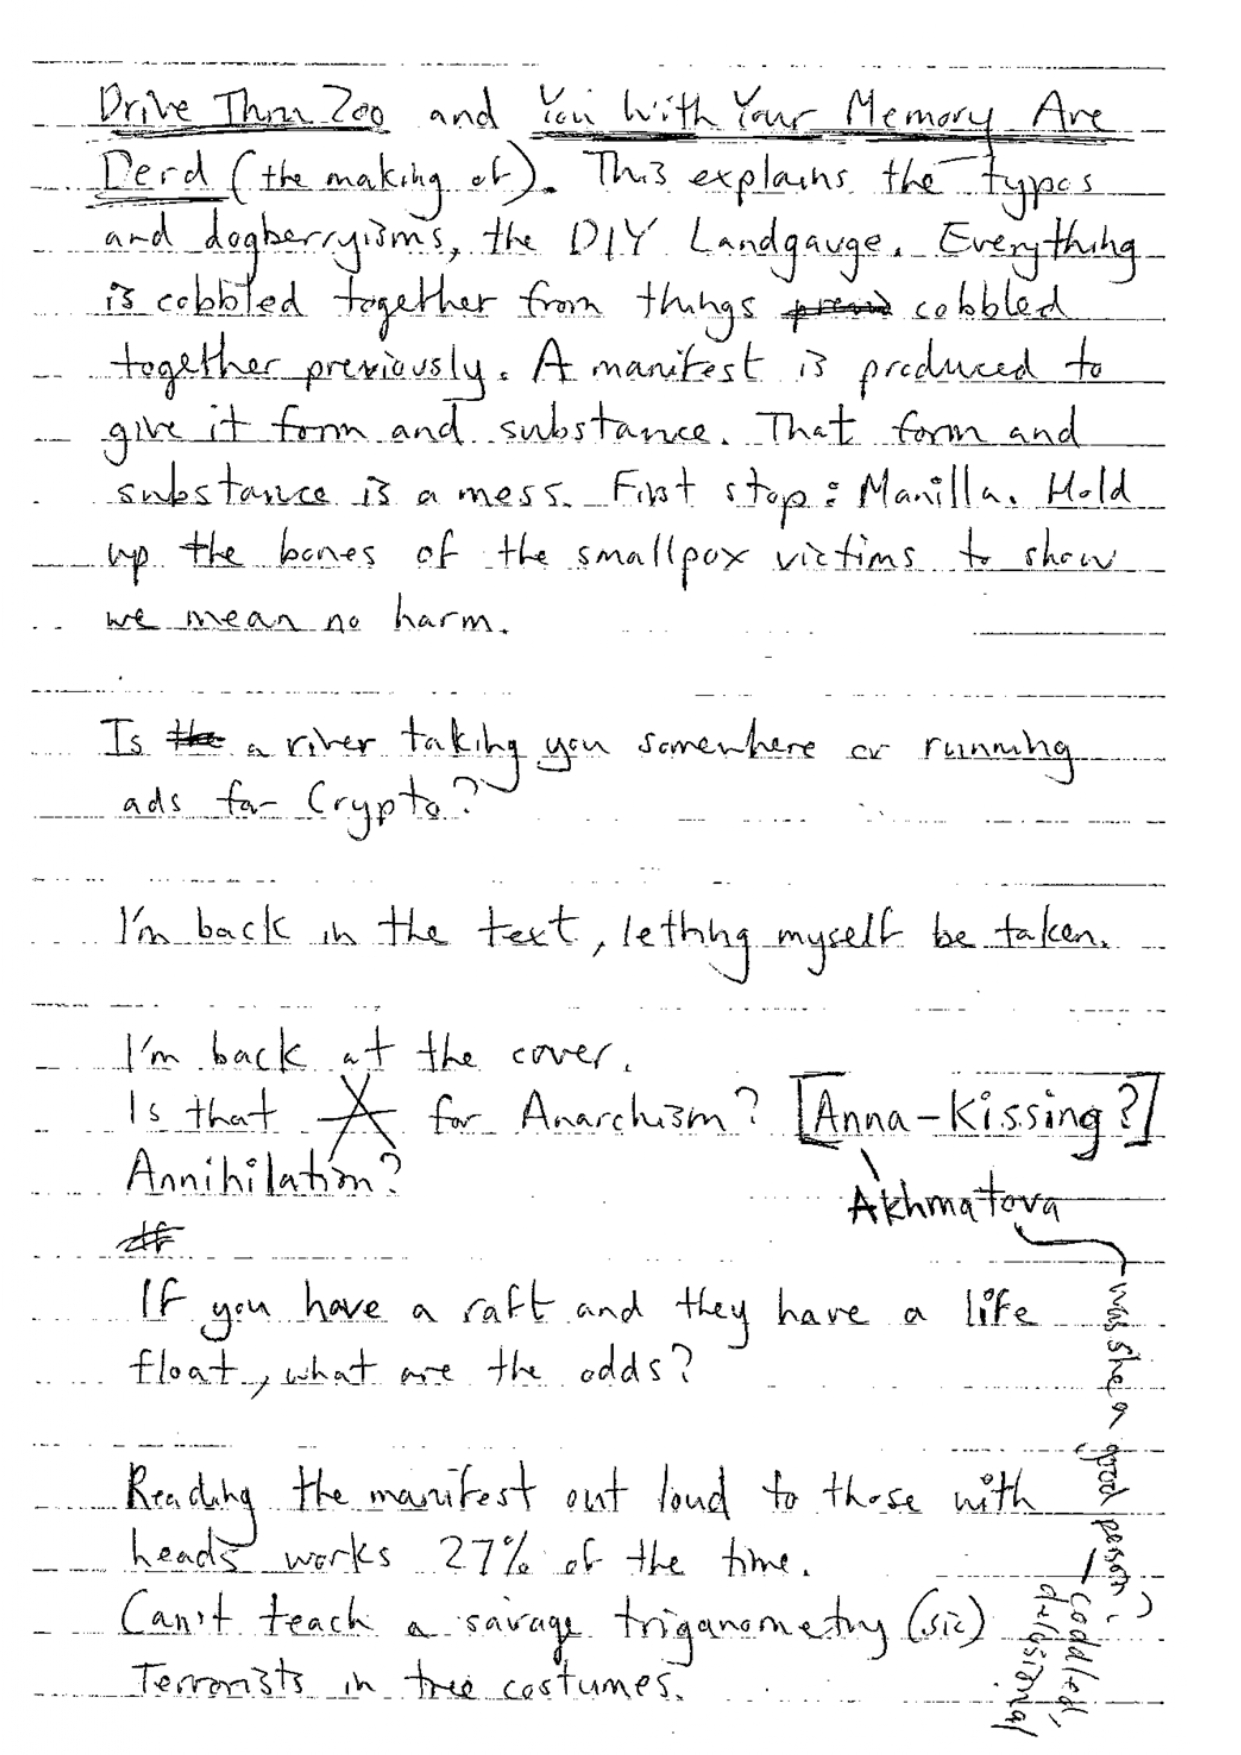 Drive Thru Zoo and You With Your Memory Are
Derd (the making of). This explains the typos
and dogberryisms, the DIY Landgauge. Everything
is cobbled together from things cobbled
together previously. A manifest is produced to
give it form and substance. That form and
substance is a mess. First stop: Manilla. Hold
up the bones of the smallpox victims to show
we mean no harm.
Is the a river taking you somewhere or running
ads for Crypto?
I'm back in the text, letting myself be taken.
I'm back at the cover.
Is that A for Anarchism? [Anna-Kissing?]
Annihilation?
Akhmatova
was she a good person?
coddled,
delusional
If you have a raft and they have a life
float, what are the odds?
Reading the manifest out loud to those with
heads works 27% of the time.
Can't teach a savage triganometry (sic)
Terrorists in tree costumes.